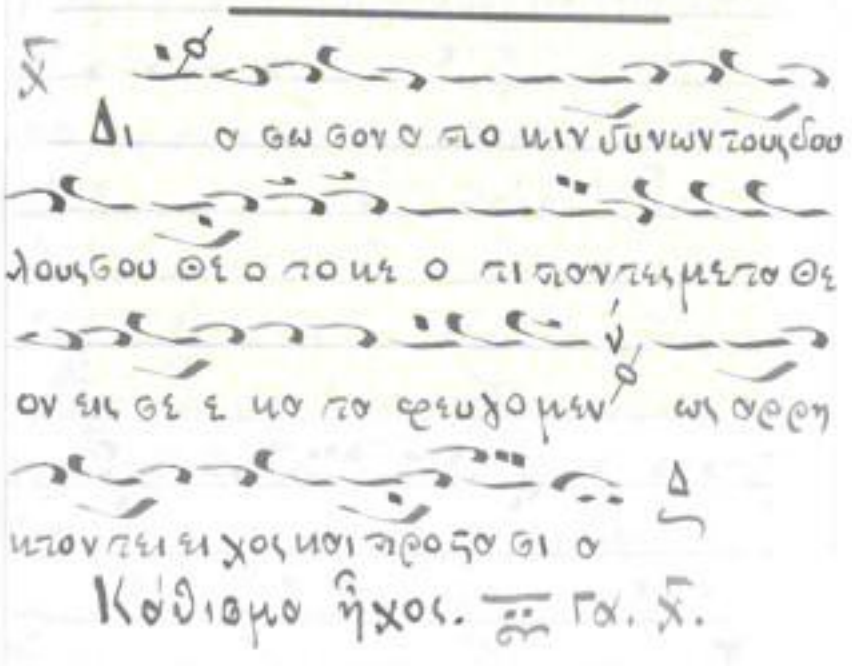 Δι α σω σον α πο κιν δυ νων τους δου
λους σου Θε ο το κε ο τι παν τες με τα Θε
ον εις σε ε κα τα φευ γο μεν ως αρρη
κτον τει ει χος και προ στα σι α Δ
Κάθισμα ἦχος. Γα.